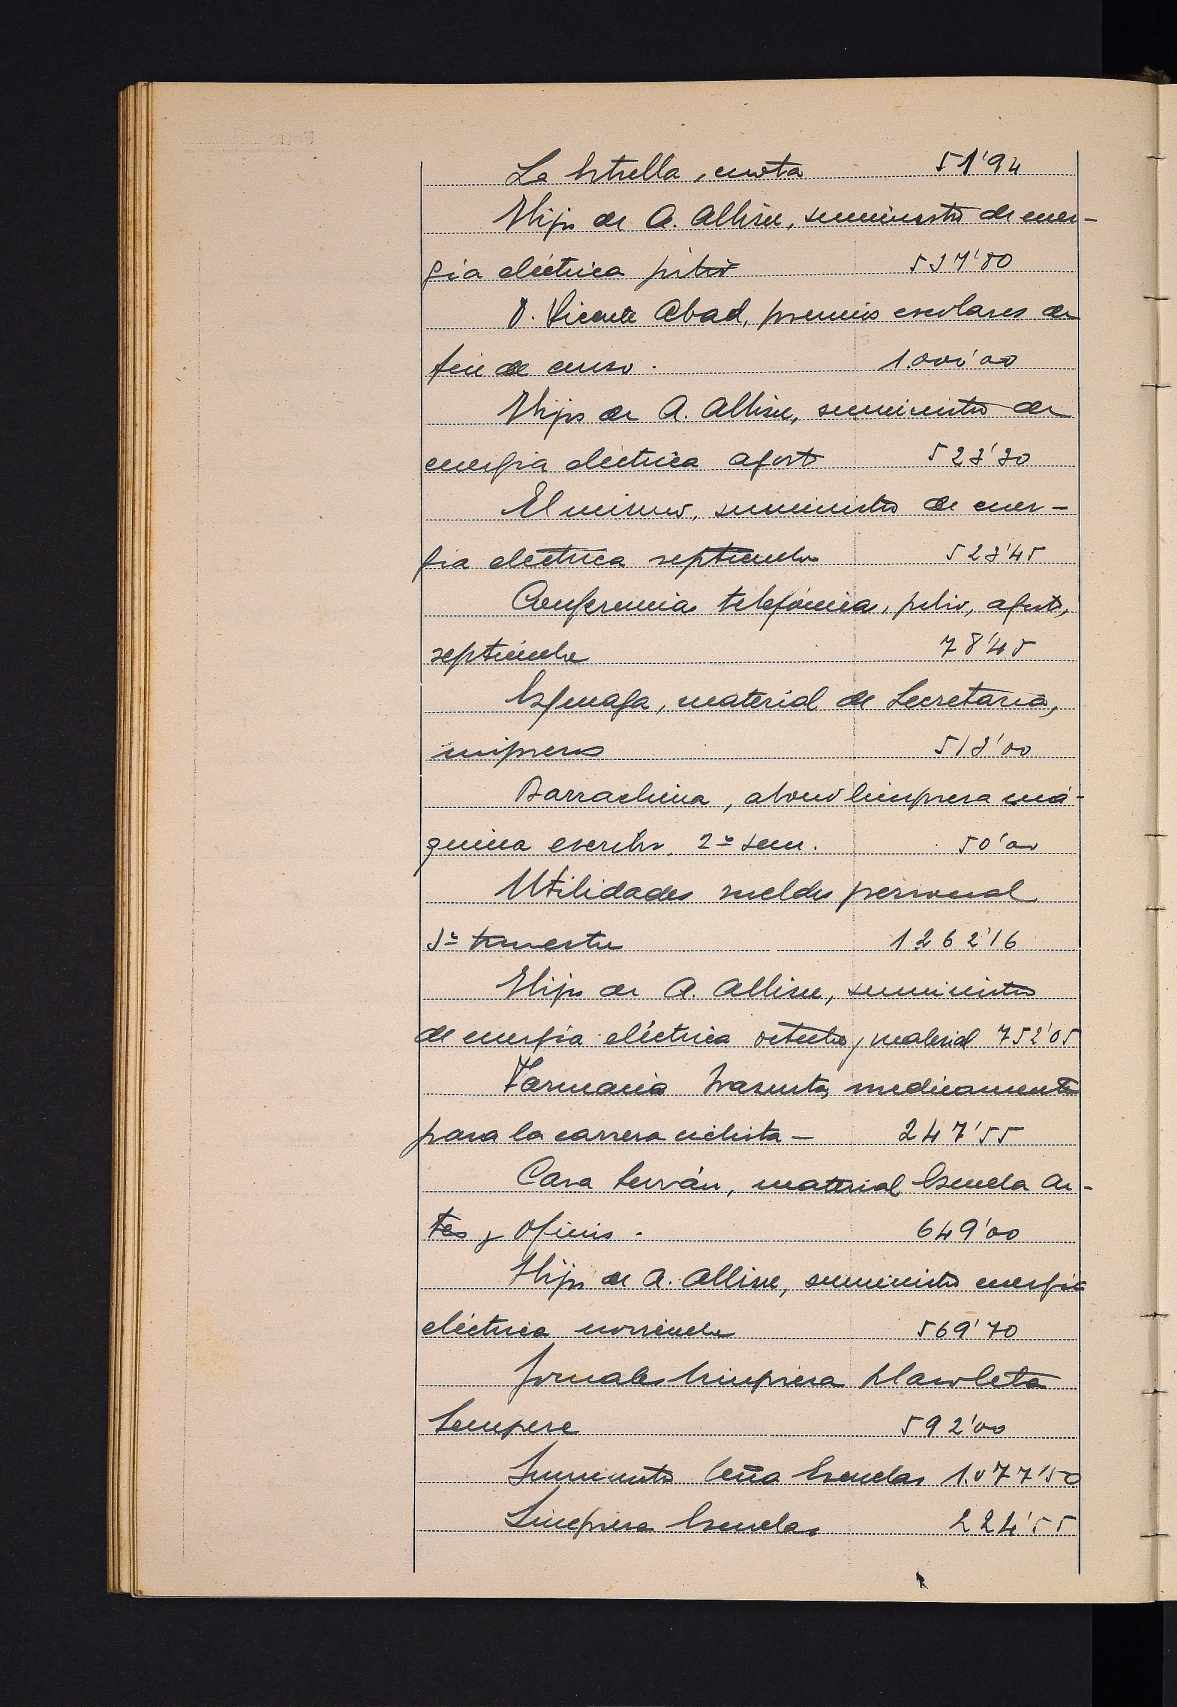 La Estrella, cuota 51'94
Hijo de A. Albire, suministro de ener-
gía eléctrica julio 537'80
D. Vicente Abad, premios escolares de
fin de curso. 1.000'00
Hijos de A. Albire, suministro de
energía eléctrica agosto 523'30
El mismo, suministro de ener-
gía eléctrica septiembre 523'45
Conferencias telefónicas, julio, agosto,
septiembre 78'45
material de Secretaria,
impresos 513'00
Barrachina, abono limpieza má-
quina escribir, 2º sem. 50'00
Utilidades sueldos personal
3º trimestre 1262'16
Hijo de A. Albire, suministro
de energía eléctrica octubre y material 752'05
Farmacia medicamentos
para la carrera ciclista - 247'55
Casa Serván, material Escuela Ar-
tes y Oficios. 649'00
Hijo de A. Albire, suministro energía
eléctrica noviembre 569'70
Jornales limpieza Plazoleta
Sempere 592'00
Suministro leña Escuelas 1.077'50
Limpieza Escuelas 224'55